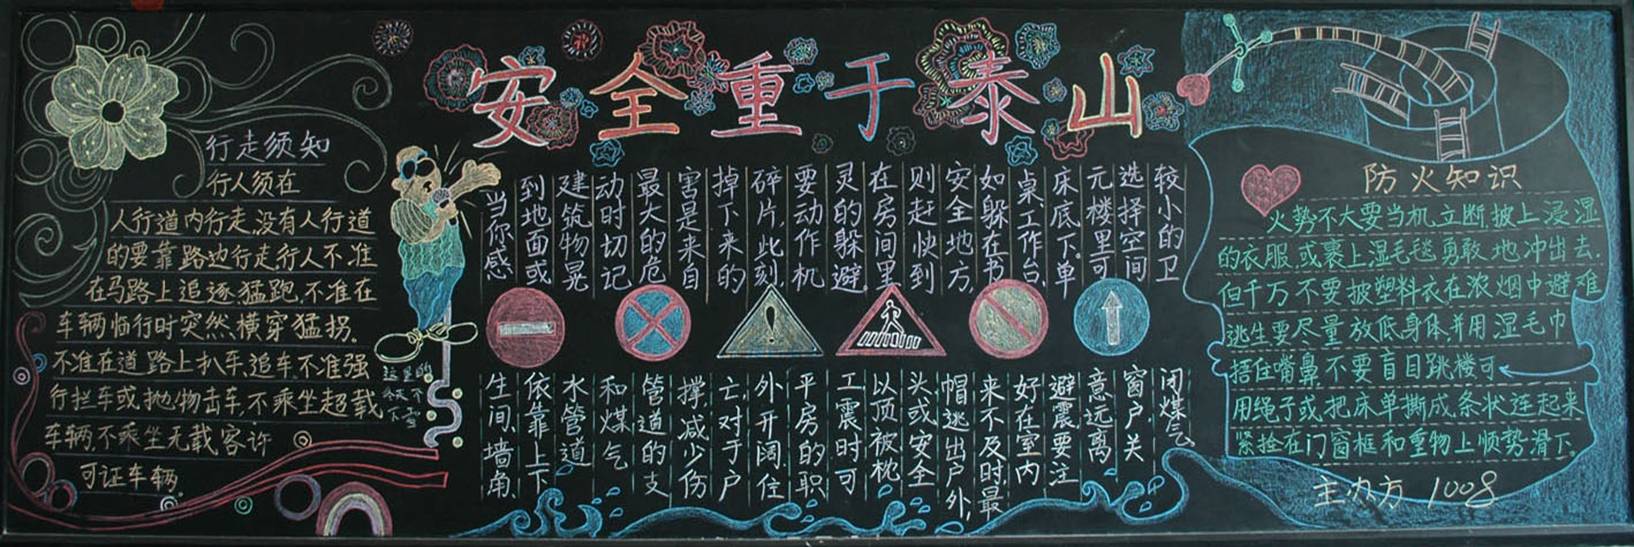 安全重于泰山
行走须知
行人须在
人行道内行走,没有人行道
的要靠路边行走,行人不准
在马路上追逐猛跑,不准在
车辆临行时突然横穿猛拐.
不准在道路上扒车,追车不准强
行拦车或抛物击车,不乘坐超载
车辆,不乘坐无载客许
可证车辆.
这里的
当你感
到地面或
建筑物晃
动时切记
最大的危
害是来自
掉下来的
碎片,此刻
要动作机
灵的躲避.
在房间里
则赶快到
安全地方,
如躲在书
桌、工作台、
床底下.单
元楼里可
选择空间
较小的卫
生间、墙角.
依靠上下
水管道
和煤气
管道的支
撑,减少伤
亡.对于户
外开阔住
平房的职
工震时可
以顶被枕
头或安全
帽逃出户外,
来不及时最
好在室内
避震要注
意远离
窗户关
闭煤气.
防火知识
火势不大要当机立断披上浸湿
的衣服,或裹上湿毛毯勇敢地冲出去.
但千万不要披塑料衣在浓烟中避难
逃生要尽量放低身体并用湿毛巾
捂住嘴鼻,不要盲目跳楼可
用绳子或把床单撕成条状连起来
紧拴在门窗框和重物上顺势滑下.
主办方 1008